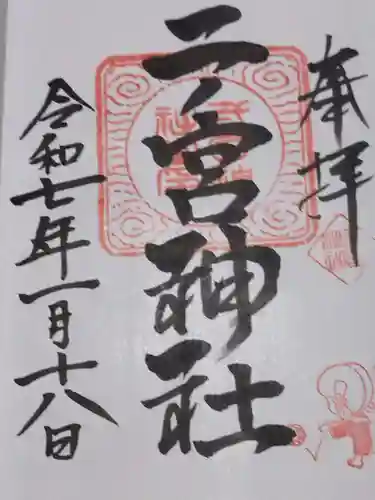 奉拝
二宮神社
令和七年一月十八日